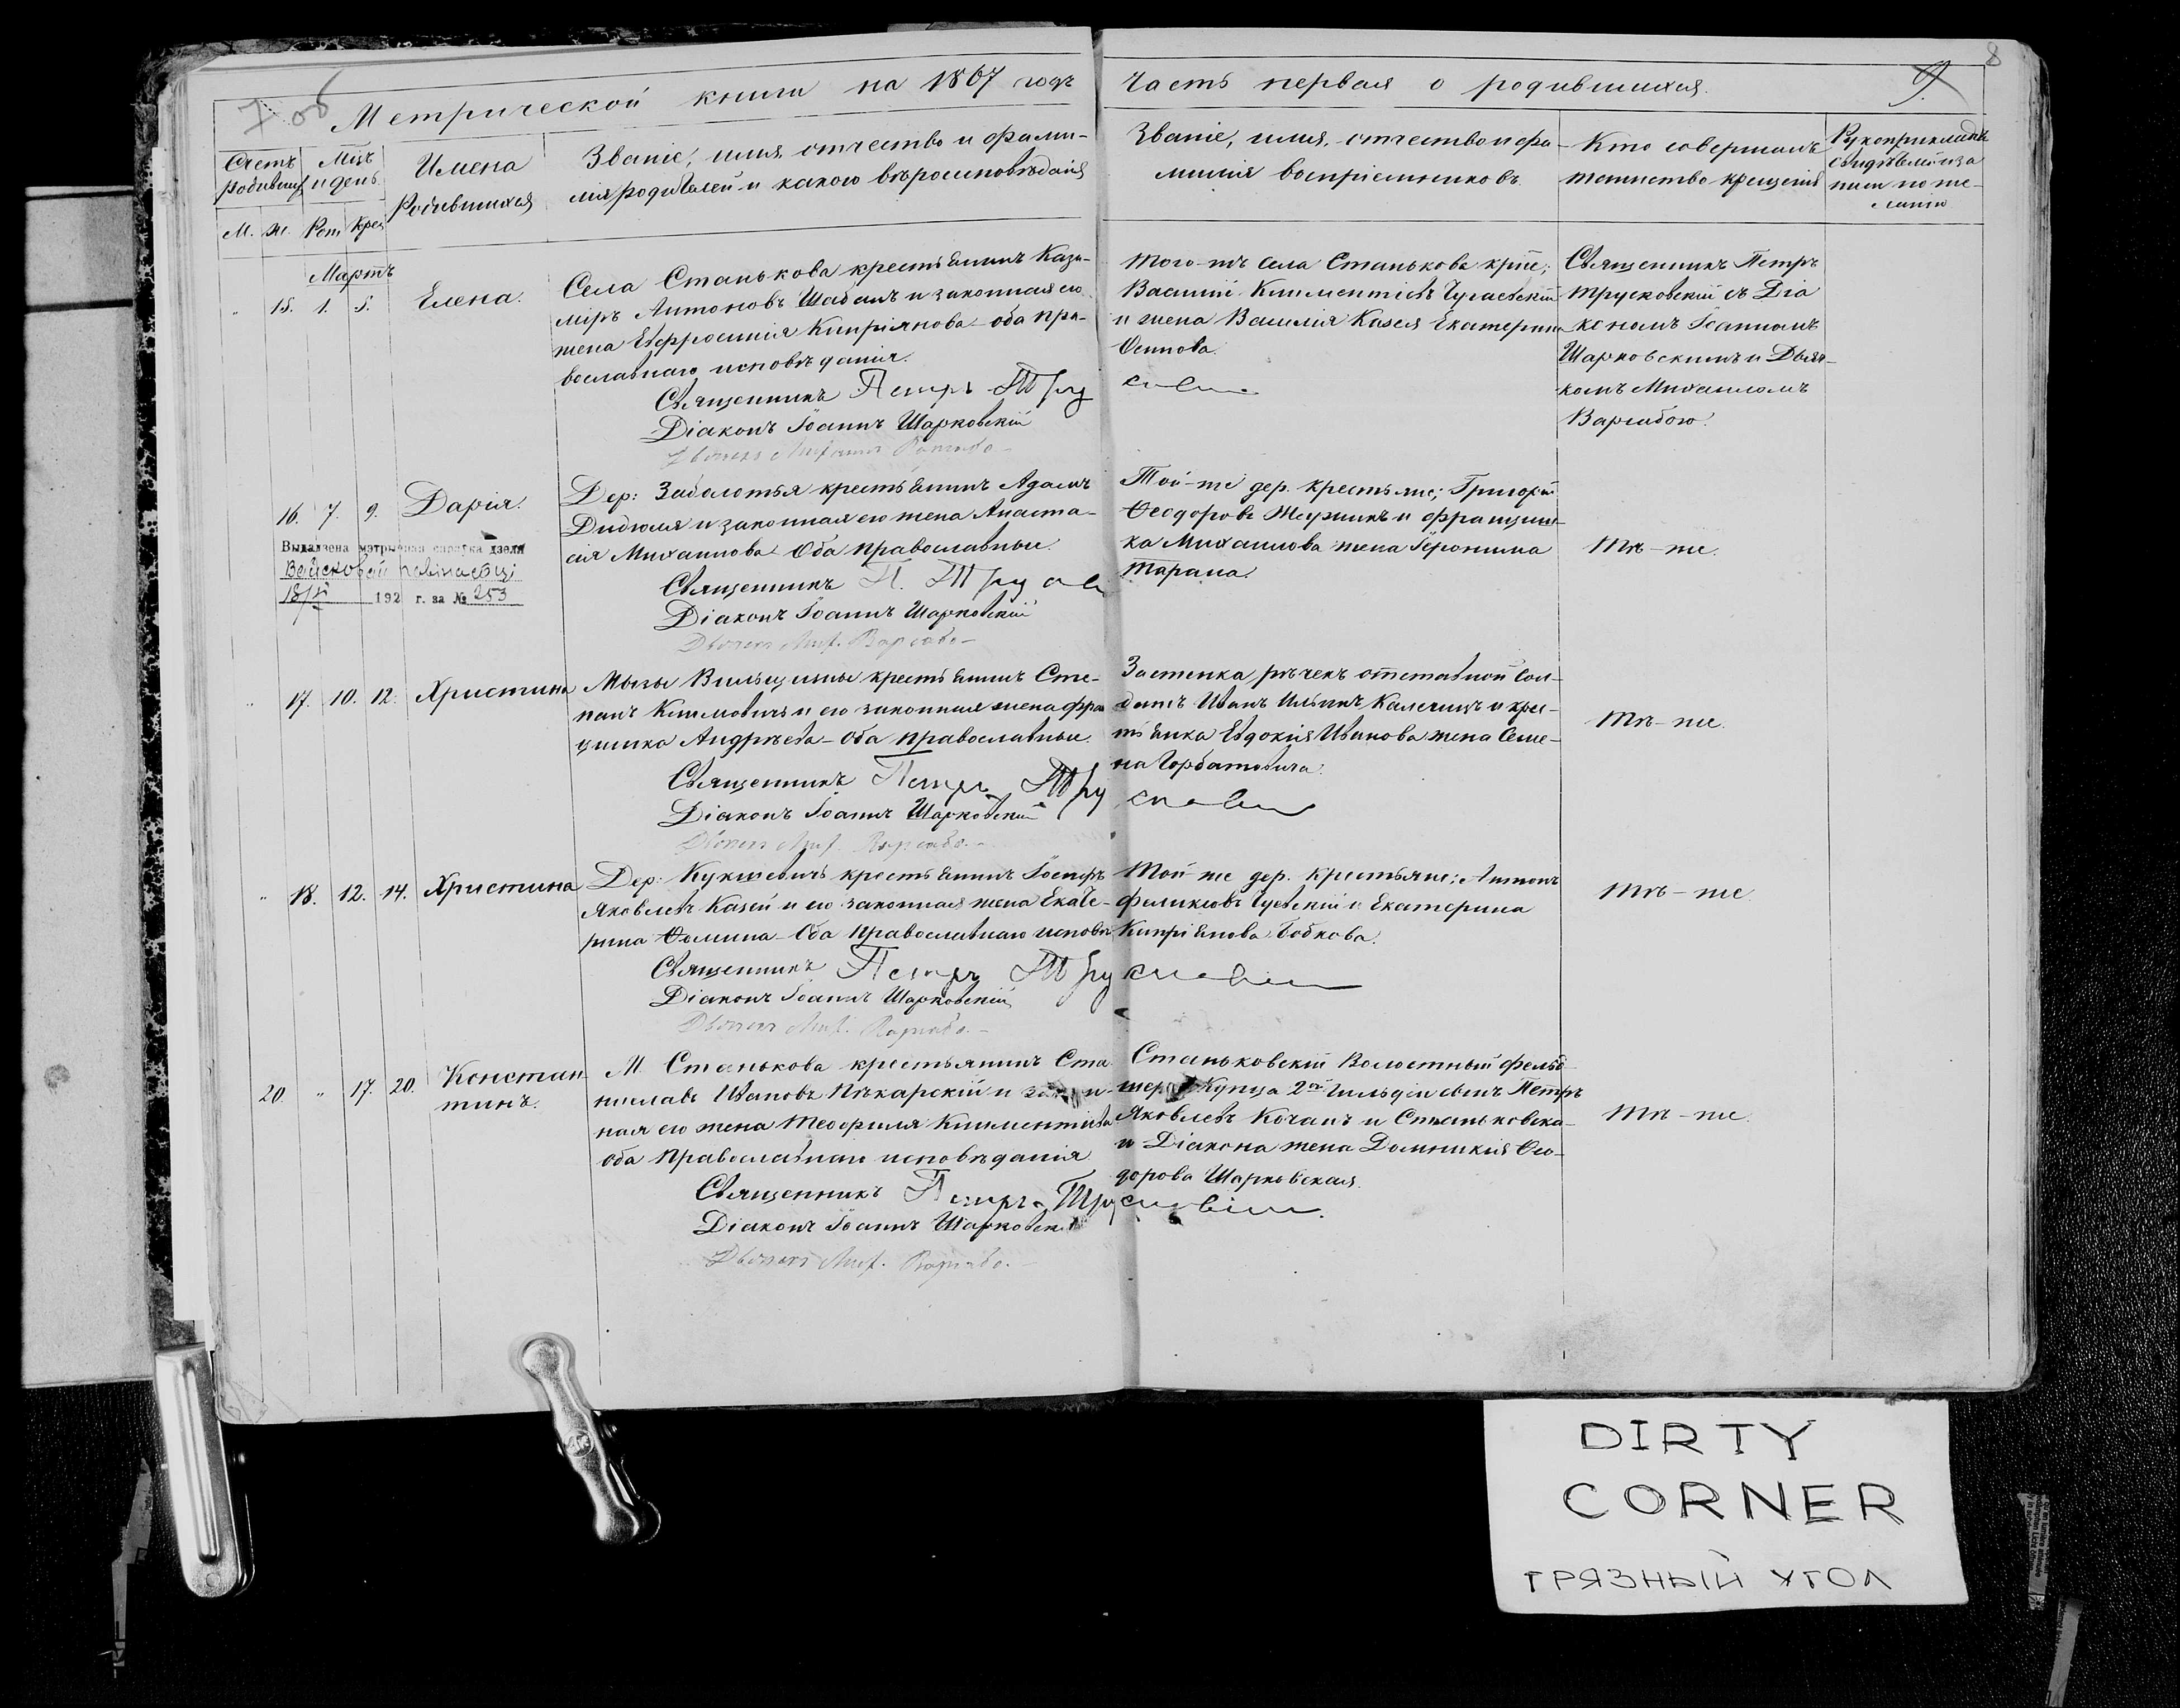 7 об
8
9.
Метрической книги на 1867 годъ
Часть первая о родившихся.
Счетъ родивших
Мцъ и день
Имена Родившихся
Званіе, имя, отчество и фами-
лія родителей и какого вѣроисповѣданія
Званіе, имя, отчество и фа-
милія воспріемниковъ.
Кто совершалъ
таинство крещенія
Рукоприкладст
свидѣтелей иза
писи по же-
ланію
М. Ж. Рож Крещ
Мартъ
" 15. 1. 5. Елена.
Села Станькова крестьянинъ Кази-
міръ Антоновъ Шабанъ и законная его
жена Евфросинія Кипріянова – оба пра-
вославнаго исповѣданія.
Священникъ Петръ Тру
Діаконъ Іоаннъ Шарковскій
Того-жъ села Станькова крте;
Василій Климентіевъ
и жена Василія Казея Екатерина
Осипова.
Священникъ Петръ
Трусковскій съ Діа
кономъ Іоанномъ
Шарковскимъ и Дьяч-
комъ Михаиломъ
16. 7. 9. Дарія.
Выдадзена мэтрычная справка дзеля
Вайсковай павіннасьці
192 г. за № 253
Дер: Заболотья крестьянинъ Адамъ
Дидюля и законная его жена Анаста-
сія Михаилова. Оба православные.
Священникъ П. Тру
Діаконъ Іоаннъ Шарковскій
Той-же дер. крестьяне; Григорій
Ѳеодоровъ и Францишк-
ка Михаилова жена Іеронима
Тарана.
Тѣ-же.
" 17. 10. 12. Христина
Мызы крестьянинъ Сте-
панъ Климовичъ и его законная жена Фран
цишка Андреева – Оба православные.
Священникъ Петръ Тру
Діаконъ Іоаннъ Шарковскій
Застенка рѣчекъ отставной Сол-
датъ Иванъ Ильинъ Калечицъ и крес-
тьянка Евдокія Иванова жена Семе-
на Горбатовича.
Тѣ-же
" 18. 12. 14. Христина
Дер: Кукшевичъ крестьянинъ Іосифъ
Яковлевъ Казей и его законная жена Екате-
рина Ѳомина – Оба православнаго исповѣ
Священникъ Петръ Тру
Діаконъ Іоаннъ Шарковскій
Той-же дер. крестьяне; Антонъ
Феликсовъ и Екатерина
Кипріянова Бобкова.
Тѣ-же
20. " 17. 20. Констан
тинъ.
М. Станькова крестьянинъ Ста
ниславъ Ивановъ Пѣкарскій и закон-
ная его жена Теофиля Климентіева
оба православнаго исповѣданія
Священникъ Петръ Тру
Діаконъ Іоаннъ Шарковскій
Станьковскій Волостный фельд-
шеръ Купца 2ой гильдіи сынъ Петръ
Яковлевъ Кочанъ и Станьковска-
го Діакона жена Домникія Ѳео-
дорова Шарковская.
Тѣ-же.
DIRTY
CORNER
ГРЯЗНЫЙ УГОЛ